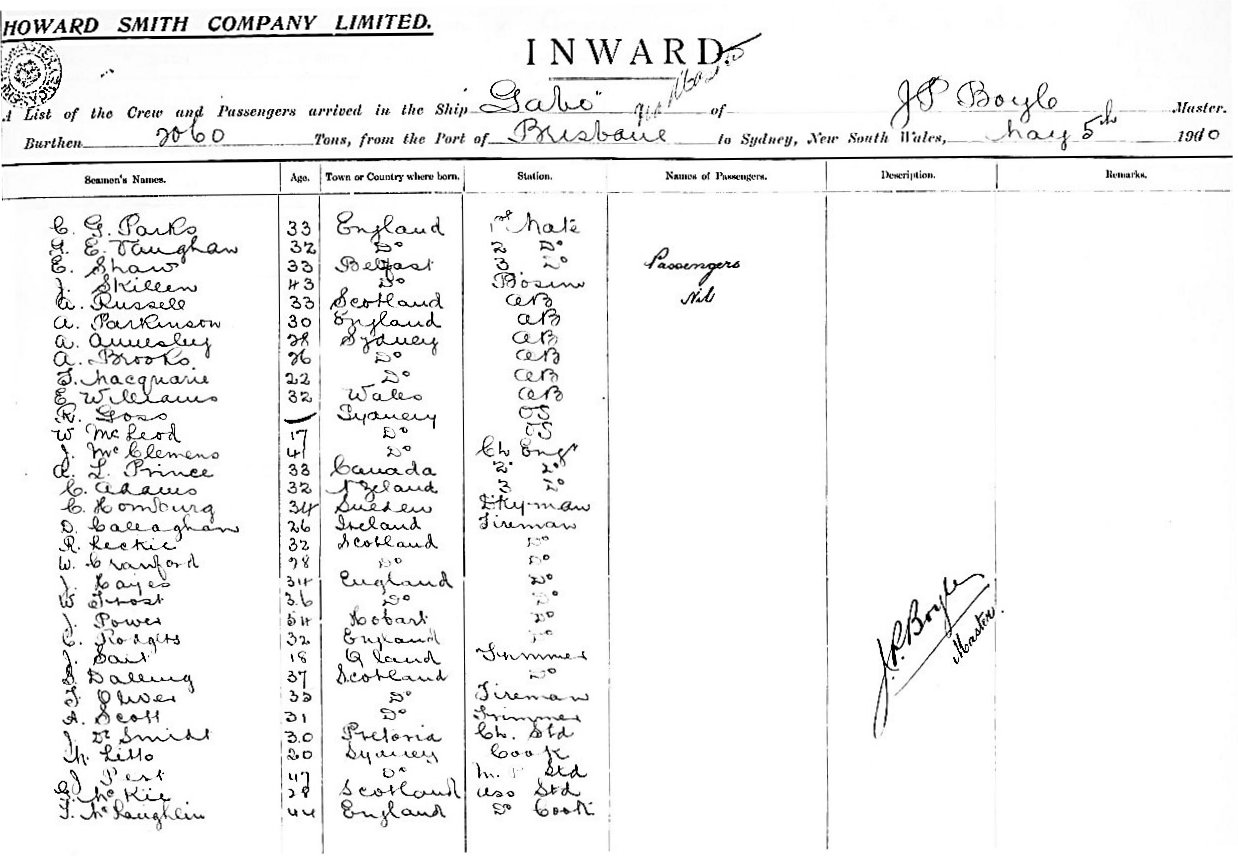 HOWARD SMITH COMPANY LIMITED.
INWARD.
A List of the Crew and Passengers arrived in the Ship "Gabo" of J P Boyle Master.
Burthen 2060 Tons, from the Port of Brisbane to Sydney, New South Wales, May 5th 1910
Seamen's Names. Age. Town or Country where born. Station. Names of Passengers. Description. Remarks.
C. G. Parks 33 England 1st Mate
E. Vaughan 32 Do 2 Do
E. Shaw 33 Belfast 3 Do Passengers
J. Skillen 43 Do Bosun
A. Russell 33 Scotland AB Nil
A. Parkinson 30 England AB
A. Annesley 28 Sydney AB
A. Brooks 26 Do AB
T. Macquarie 22 Do AB
E Williams 32 Wales AB
R. Goss Sydney OS
W McLeod 17 Do OS
J. McClemens 41 Do Ch Engr
A. L. Prince 33 Canada 2 Do
C. Adams 32 N Zeland 3 Do
C. Homburg 34 Sueden Dky-man
D. Callaghan 26 Ireland Fireman
R. Leckie 32 Scotland Do
W. Cranford 28 Do Do
J. Hayes 34 England Do
W Frost 36 Do Do
J. Power 54 Hobart Do
C. Rodgers 32 England Do
J. Sait 18 Q land Trimmer
Dalling 37 Scotland Do
T. Oliver 33 Do Fireman
A. Scott 31 Do Trimmer
J De Smidt 30 Pretoria Ch. Std
Litto 20 Sydney Cook
J Pert 47 Do Std
McKie 28 Scotland ass Std
T. McLaughlin 44 England Do Cook
J.P. Boyle
Master.